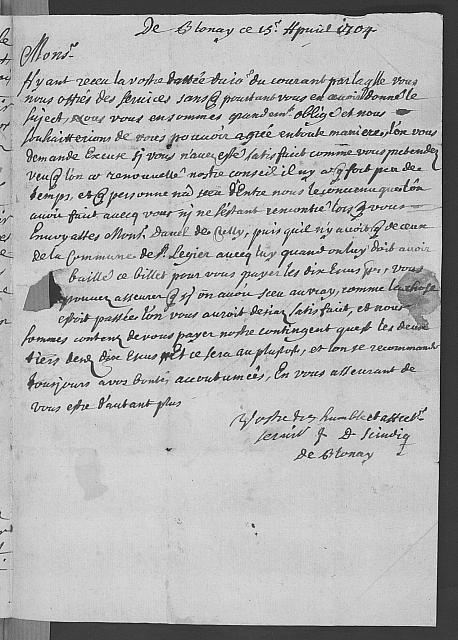 De Blonay ce 15e Apvril 1704
Monsr
Ayant receu la vostre dattée du 10e du courant par laqlle vous
nous offrés des services sans q pourtant vous en avoir donné le
suject, nous vous en sommes grandemt obligé et nous
souhaitterions de vous pouvoir agréé en toute maniere, l'on vous
demande Excuse si vous n'avez esté satisfaict comme vous pretendez
veu q l'on a renouvellé nostre conseil il ny a q fort peu de
temps, et q personne na sceu d'Entre nous le convenu que l'on
avoit faict avecq vous ni ne s'estant rencontré lors q vous
Envoyattes Monsr Davel de Cully, puis quil n'y avoit q de ceux
de la Commune de St Legier avecq luy quand on luy doit avoir
baillé ce billet pour vous payer les dix Escus, vous
pouvez asseurer q si on avoit sceu au vray, comme la chose
estoit passée l'on vous auroit desja satisfaict, et nous
sommes content de vous payer nostre contingent quest les deux
tiers desd dix Escus et ce sera au plustost, et l'on se recommande
tousjours a vos bontés accoutumées, En vous asseurant de
vous estre d'autant plus
Vostre tres humble et affectr
servitr
de Blonay